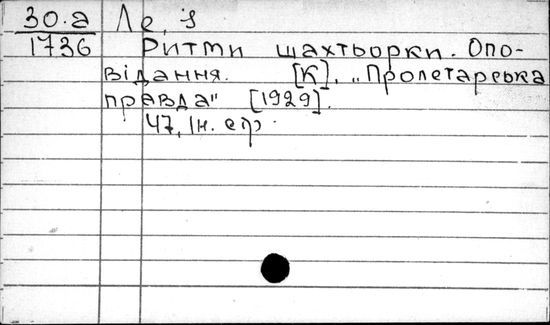 30.а Ле, І
1736 Ритми шахтьорки. Опо-
відання. [К]. „Пролетарська
правда" [1929].
47, Ін. стр.